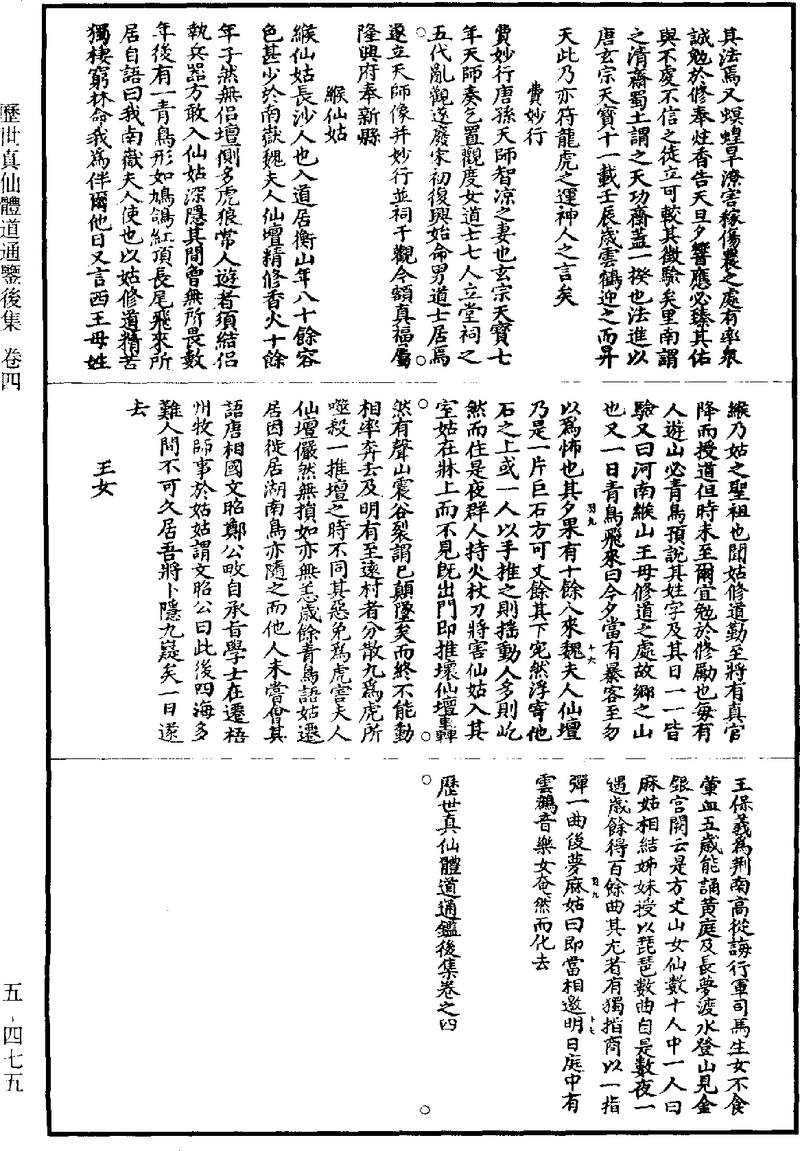 其法焉又螟蝗旱潦害稼傷農之處有率衆
誠勉於修奉炷香告天旦夕響應必臻其佑
與不虔不信之徒立可較其徵驗矣里南謂
之清齋蜀土謂之天功齋蓋一揆也法進以
唐玄宗天寶十一載壬辰歲雲鶴迎之而昇
天此乃亦符龍虎之運神人之言矣
費妙行
費妙行唐孫天師智凉之妻也玄宗天寶七
年天師奏乞置觀度女道士七人立堂祠之
五代亂觀遂廢宋初復興始命男道士居焉
遂立天師像并妙行並祠于觀今額真福屬
隆興府奉新縣
緱仙姑
緱仙姑長沙人也入道居衡山年八十餘容
色甚少於南嶽魏夫人仙壇精修香火十餘
年孑然無侶壇側多虎狼常人遊者須結侶
執兵器方敢入仙姑深隱其間曾無所畏數
年後有一青鳥形如鳩鴿紅頂長尾飛來所
居自語曰我南嶽夫人使也以姑修道精苦
獨棲窮林命我為伴爾他日又言西王母姓
緱乃姑之聖祖也聞姑修道勤至將有真官
降而授道但時未至爾宜勉於修勵也每有
人遊山必青鳥預說其姓字及其日一一皆
驗又曰河南緱山王母修道之處故鄉之山
也又一日青鳥飛來曰今夕當有暴客至勿
以為怖也其夕果有十餘人來魏夫人仙壇
乃是一片巨石方可丈餘其下宛然浮寄他
石之上或一人以手推之則搖動人多則屹
然而住是夜群人持火杖刀將害仙姑入其
室姑在牀上而不見既出門即推壞仙壇轟
然有聲山震谷裂謂已顛墜矣而終不能動
相率奔去及明有至遠村者分散九為虎所
噬殺一推壇之時不同其惡免為虎害夫人
仙壇儼然無損如亦無恙歲餘青鳥語姑遷
居因徙居湖南鳥亦隨之而他人未嘗會其
語唐相國文昭鄭公畋自承旨學士在遷梧
州牧師事於姑姑謂文昭公曰此後四海多
難人間不可久居吾將卜隱九嶷矣一日遂
去
王女
王保義為荆南高從誨行軍司馬生女不食
葷血五歲能誦黃庭及長夢渡水登山見金
銀宮闕云是方丈山女仙數十人中一人曰
麻姑相結姊妹授以琵琶數曲自是數夜一
遇歲餘得百餘曲其尤者有獨指商以一指
彈一曲後夢麻姑曰即當相邀明日庭中有
雲鶴音樂女奄然而化去
歷世真仙體道通鑑後集卷之四
羽九
十六
羽九
十七
歷世真仙體道通鑒後集 卷四
五-四七五